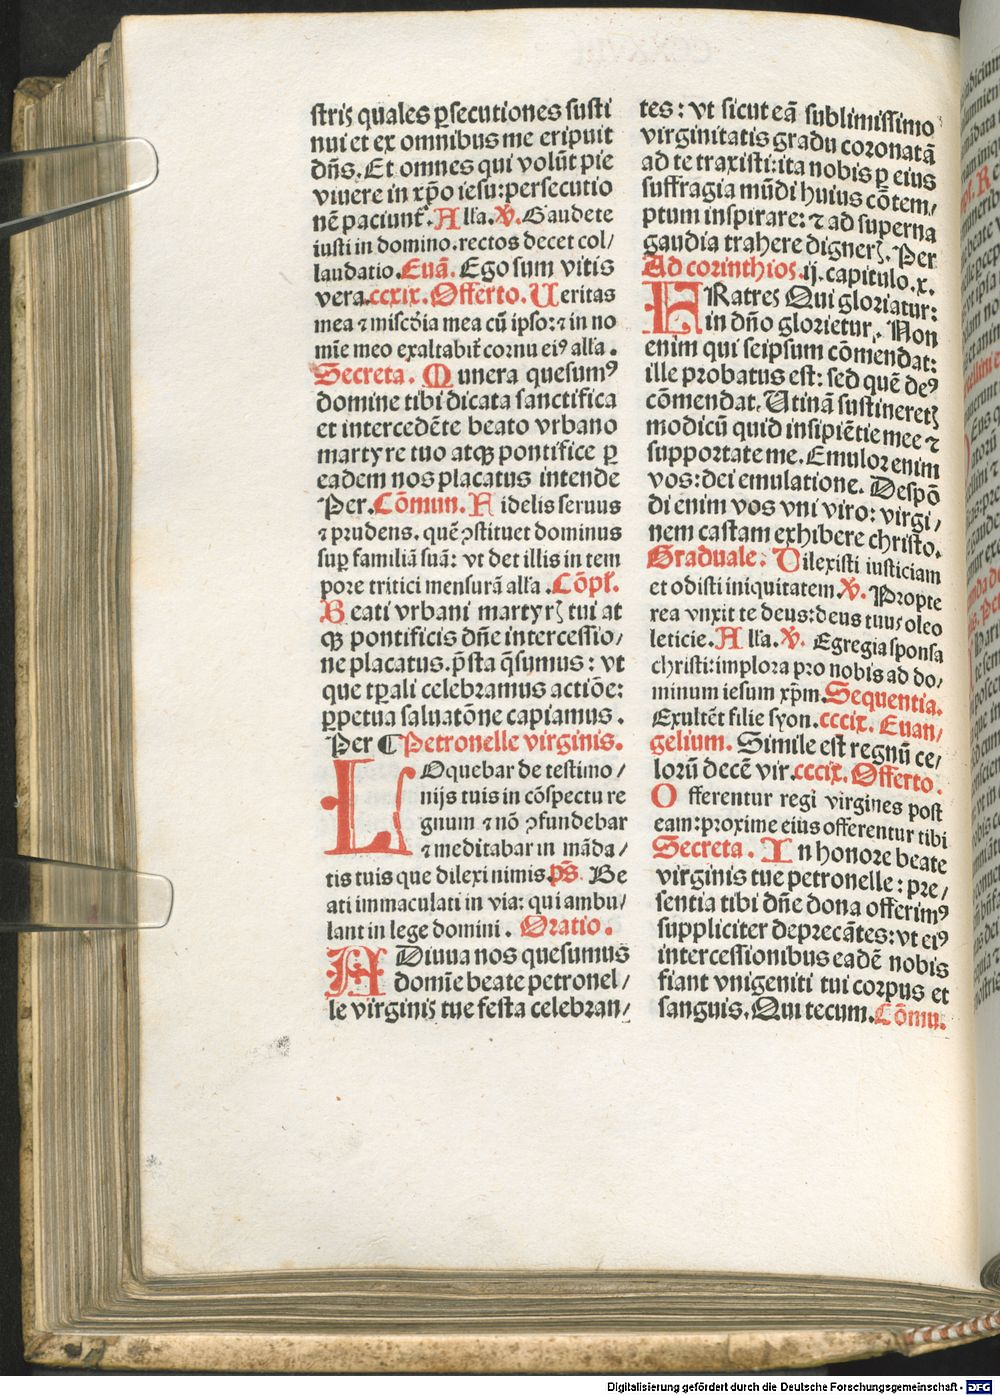 striʒ quales ꝑsecutiones susti
nui et ex omnibus me eripuit
dñs. Et omnes qui volũt pie
viuere in xp̃o iesu: persecutio
nẽ paciunt᷑. Alla. ℣. Gaudete
iusti in domino. rectos decet col/
laudatio. Euã. Ego sum vitis
vera. ccxix. Offerto. Ueritas
mea ⁊ misc̃dia mea cũ ipso: ⁊ in no
mĩe meo exaltabit᷑ cornu eiꝰ alla.
Secreta. Munera quesumꝰ
domine tibi dicata sanctifica
et intercedẽte beato vrbano
martyre tuo atqꝫ pontifice ꝑ
eadem nos placatus intende
Per. Cõmun. Fidelis seruus
⁊ prudens. quẽ ꝯstituet dominus
suꝑ familiã suã: vt det illis in tem
pore tritici mensurã alla. Cõpl.
Beati vrbani martyrꝫ tui at
qꝫ pontificis dñe intercessio/
ne placatus. p̃sta q̃sumus: vt
que tꝑali celebramus actiõe:
ꝑpetua saluatõne capiamus.
Per ¶ Petronelle virginis.
LOquebar de testimo/
nijs tuis in cõspectu re
gnum ⁊ nõ ꝯfundebar
⁊ meditabar in mãda/
tis tuis que dilexi nimis. p̃s. Be
ati immaculati in via: qui ambu/
lant in lege domini. Oratio.
ADiuua nos quesumus
domĩe beate petronel/
le virginiʒ tue festa celebran/
tes: vt sicut eã sublimissimo
virginitatis gradu coronatã
ad te traxisti: ita nobis ꝑ eius
suffragia mũdi huius cõtem/
ptum inspirare: ⁊ ad superna
gaudia trahere dignerꝫ. Per
Ad corinthios. ij. capitulo. x.
FRatres Qui gloriatur:
in dño glorietur. Non
enim qui seipsum cõmendat:
ille probatus est: sed quẽ deꝰ
cõmendat. Utinã sustineretꝫ
modicũ quid insipiẽtie mee ⁊
supportate me. Emulor enim
vos: dei emulatione. Despõ
di enim vos vni viro: virgi/
nem castam exhibere christo.
Graduale. Dilexisti iusticiam
et odisti iniquitatem ℣. Propte
rea vnxit te deus: deus tuus oleo
leticie. Alla. ℣. Egregia sponsa
christi: implora pro nobis ad do/
minum iesum xp̃m. Sequentia.
Exultẽt filie syon. cccix. Euan/
gelium. Simile est regnũ ce/
lorũ decẽ vir. cccix. Offerto.
Offerentur regi virgines post
eam: proxime eius offerentur tibi
Secreta. In honore beate
virginis tue petronelle: pre/
sentia tibi dñe dona offerimꝰ
suppliciter deprecãtes: vt eiꝰ
intercessionibus eadẽ nobis
fiant vnigeniti tui corpus et
sanguis. Qui tecum. Cõmu.
Digitalisierung gefördert durch die Deutsche Forschungsgemeinschaft - DFG